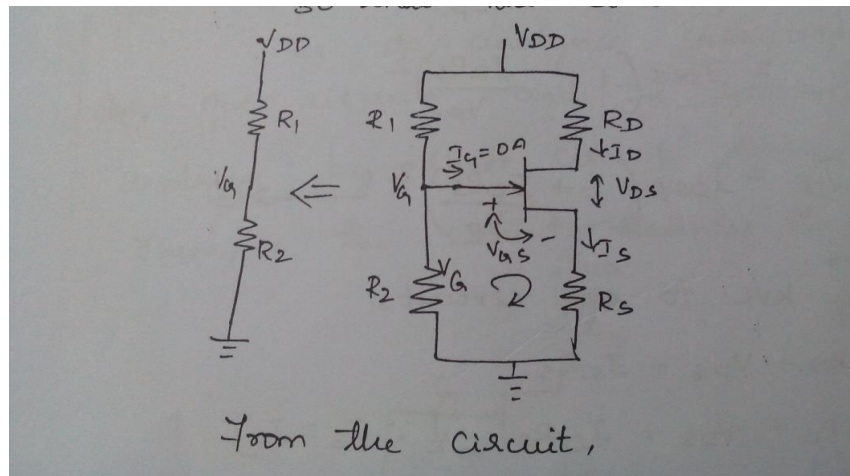 VDD
R1
VG
R2
VDD
R1
RD
IG = 0A
↓ID
VG
VDS
+
-
VGS
↓IS
R2
VG
RS
From the circuit,